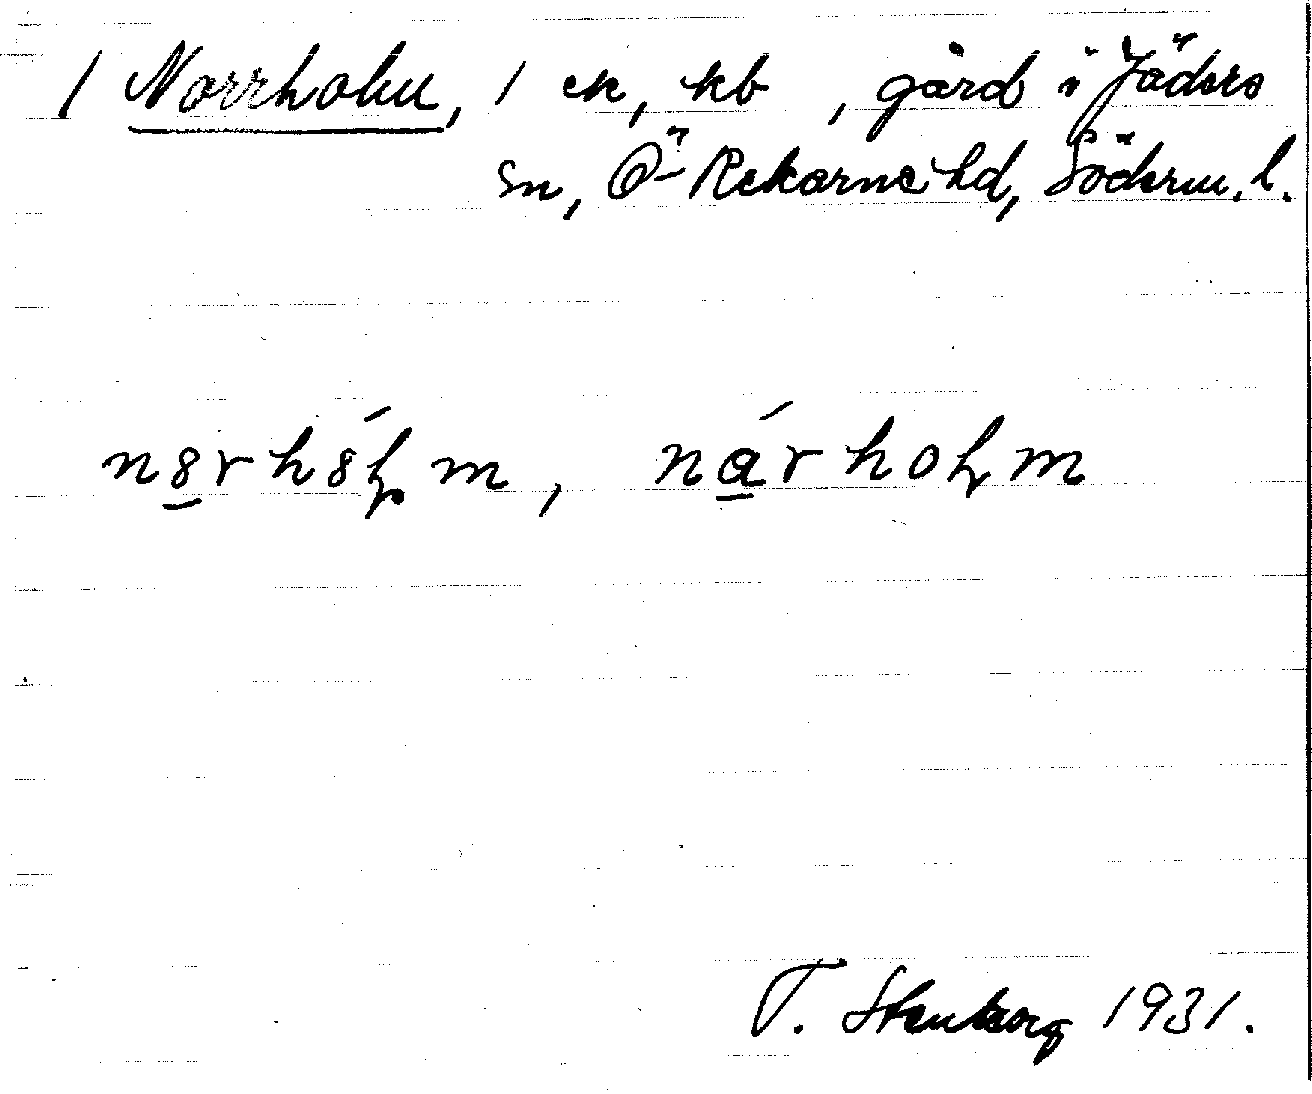 / Norrholm, / ek, kb , gård i Jäders
sn, Ö-Rekarne hd, Söderm. l.
n8rh8ɭm, nárhoɭm
T. Stenberg 1931.